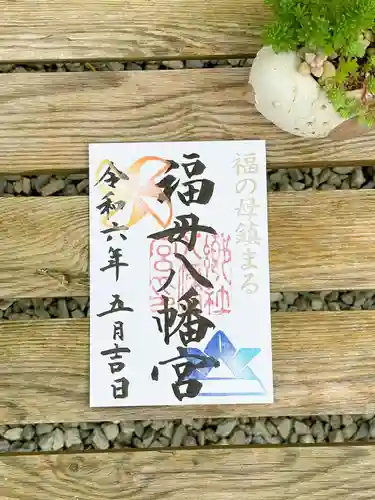 福の母鎮まる
福母八幡宮
令和六年 五月吉日